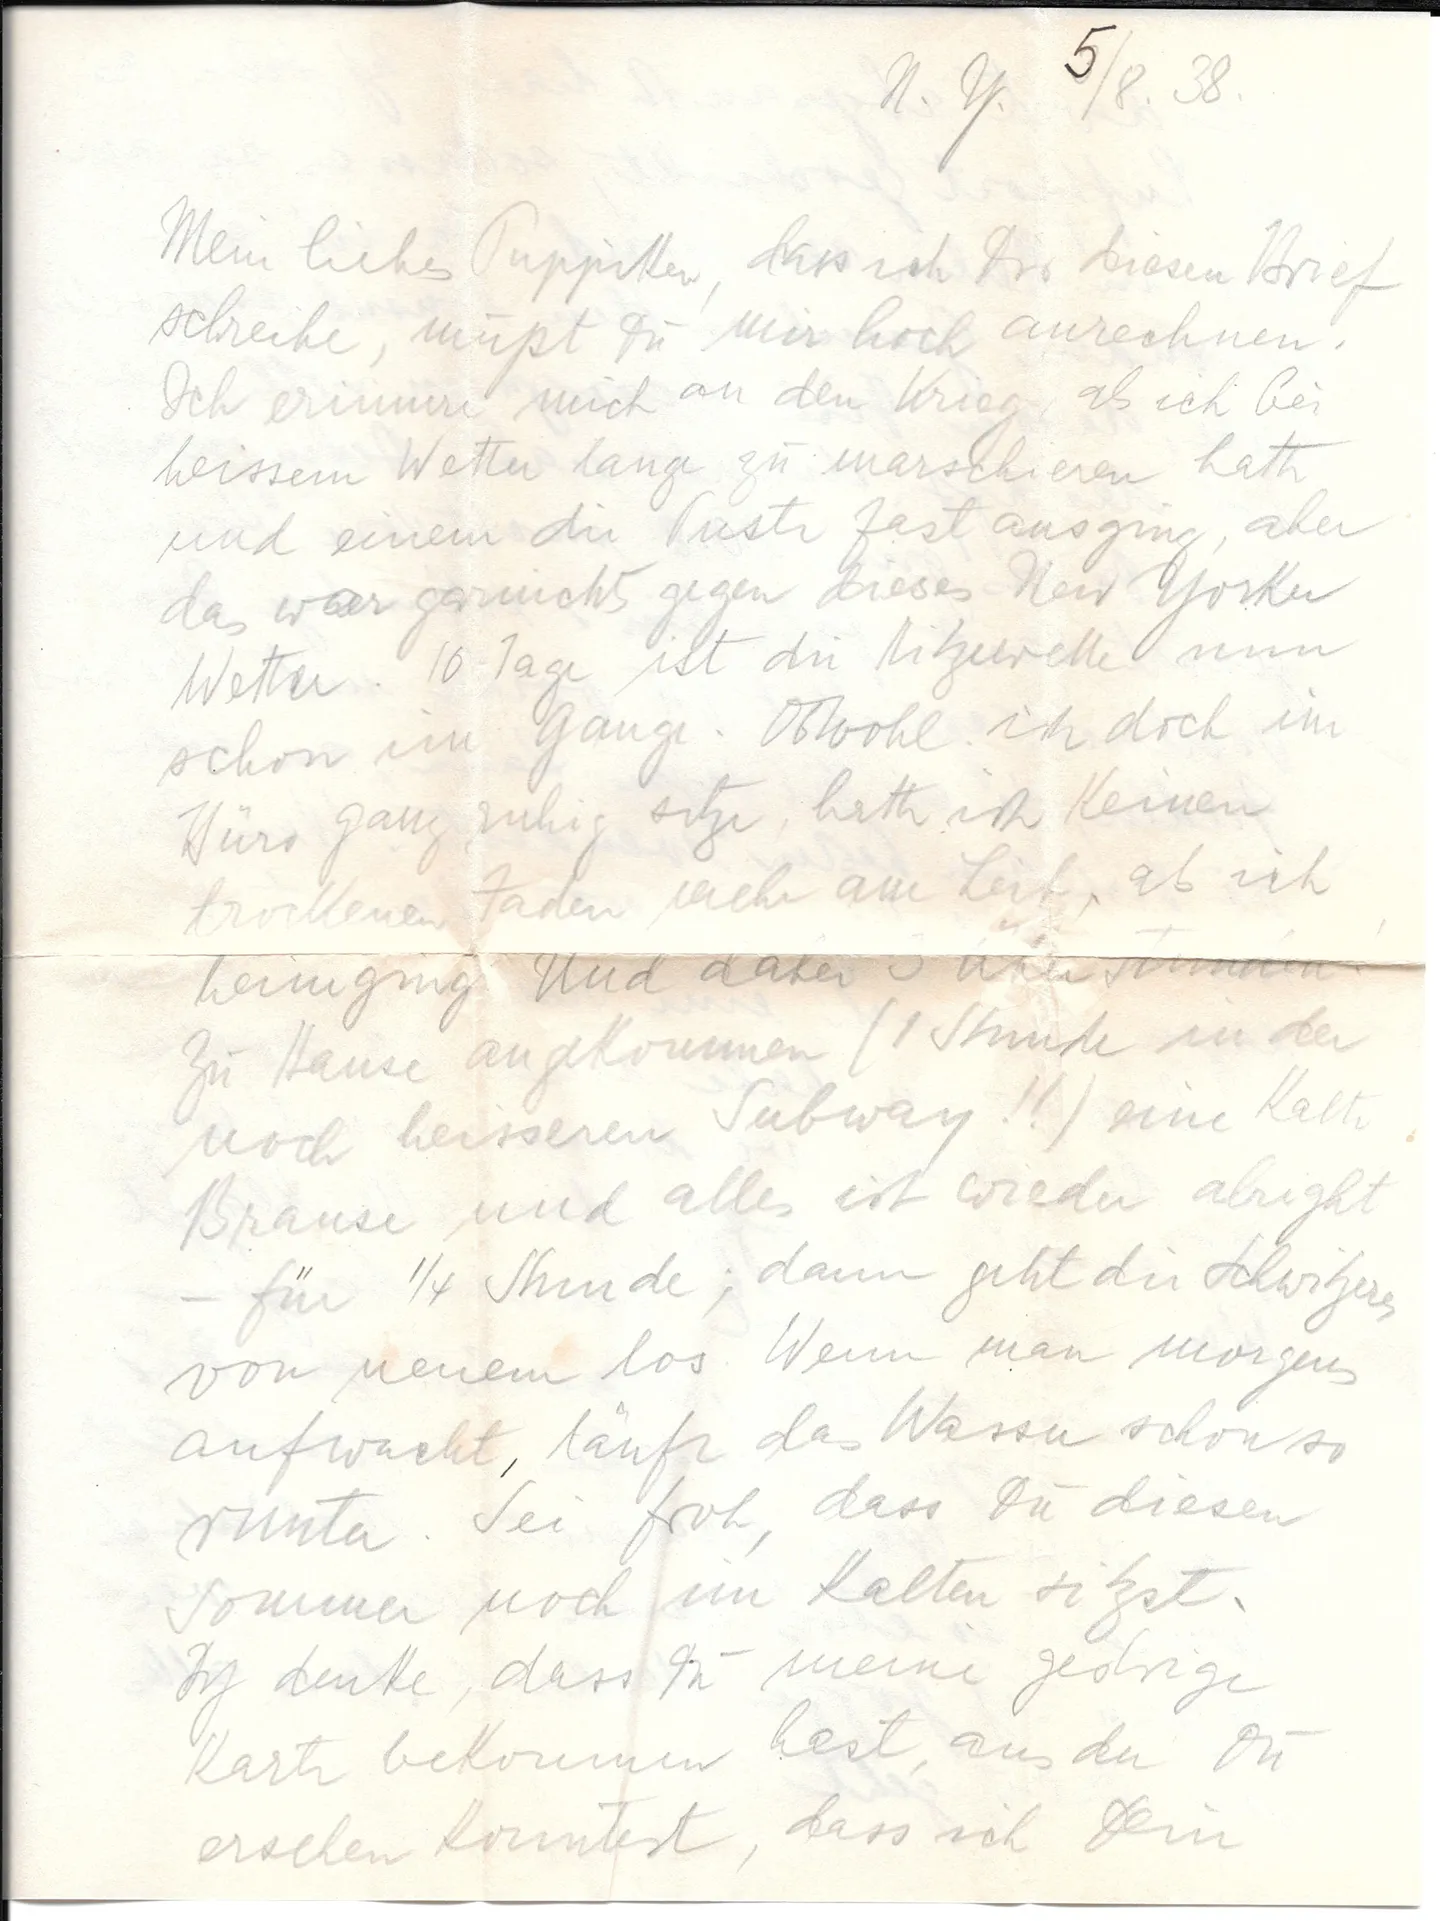 N. Y. 5/8. 38.
Mein liebes Puppchen, dass ich Dir diesen Brief
schreibe, mußt Du mir hoch anrechnen.
Ich erinnere mich an den Krieg, als ich bei
heissem Wetter lange zu marschieren hatte
und einem die Puste fast ausging, aber
das war garnichts gegen dieses New Yorker
Wetter. 10 Tage ist die Hitzewelle nun
schon im Gange. Obwohl ich doch im
Büro ganz ruhig sitze, hatte ich keinen
trockenen Faden mehr am Leib, als ich
heimging. Und dabei 3 Überstunden!
Zu Hause angekommen (1 Stunde in der
noch heisseren Subway!!) eine kalte
Brause und alles ist wieder alright
– für 1/4 Stunde; dann geht die Schwitzerei
von neuem los. Wenn man morgens
aufwacht, läuft das Wasser schon so
runter. Sei froh, dass Du diesen
Sommer noch im Kalten sitzst.
Ich denke, dass Du meine gestrige
Karte bekommen hast, aus der Du
ersehen konntest, dass ich Dein